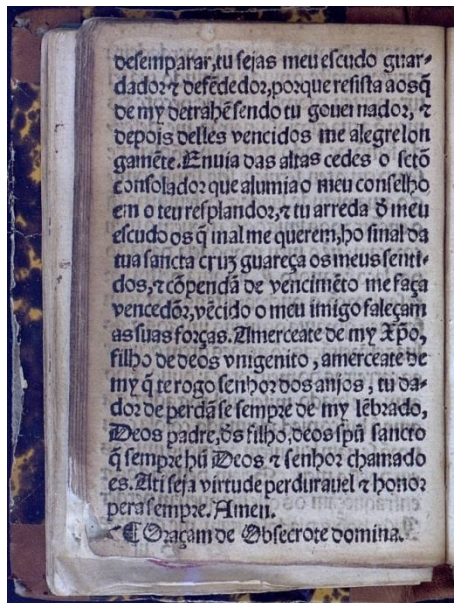 desemparar,tu sejas meu escudo guar-
dador ⁊ defẽdedor,porque resista aos q̃
de my detrahẽ sendo tu gouernador, ⁊
depois delles vencidos me alegre lon
gamẽte. Enuia das altas cedes o sctõ
consolador que alumia o meu conselho
em o teu resplandor,⁊ tu arreda d̃ meu
escudo os q̃ mal me querem,ho sinal da
tua sancta cruz guareça os meus senti-
dos,⁊ cõpendã de vencimẽto me faça
vencedor,vẽcido o meu imigo faleçam
as suas forças. Amerceate de my Xp̃o,
filho de deos vnigenito , amerceate de
my q̃ te rogo senhor dos anjos , tu da-
dor de perdã se sempre de my lẽbrado,
Deos padre,d̃s filho,deos spũ sancto
q̃ sempre hũ Deos ⁊ senhor chamado
es. A ti seja virtude perdurauel ⁊ honor
pera sempre. Amen.
¶ Oraçam de Obsecrote domina.